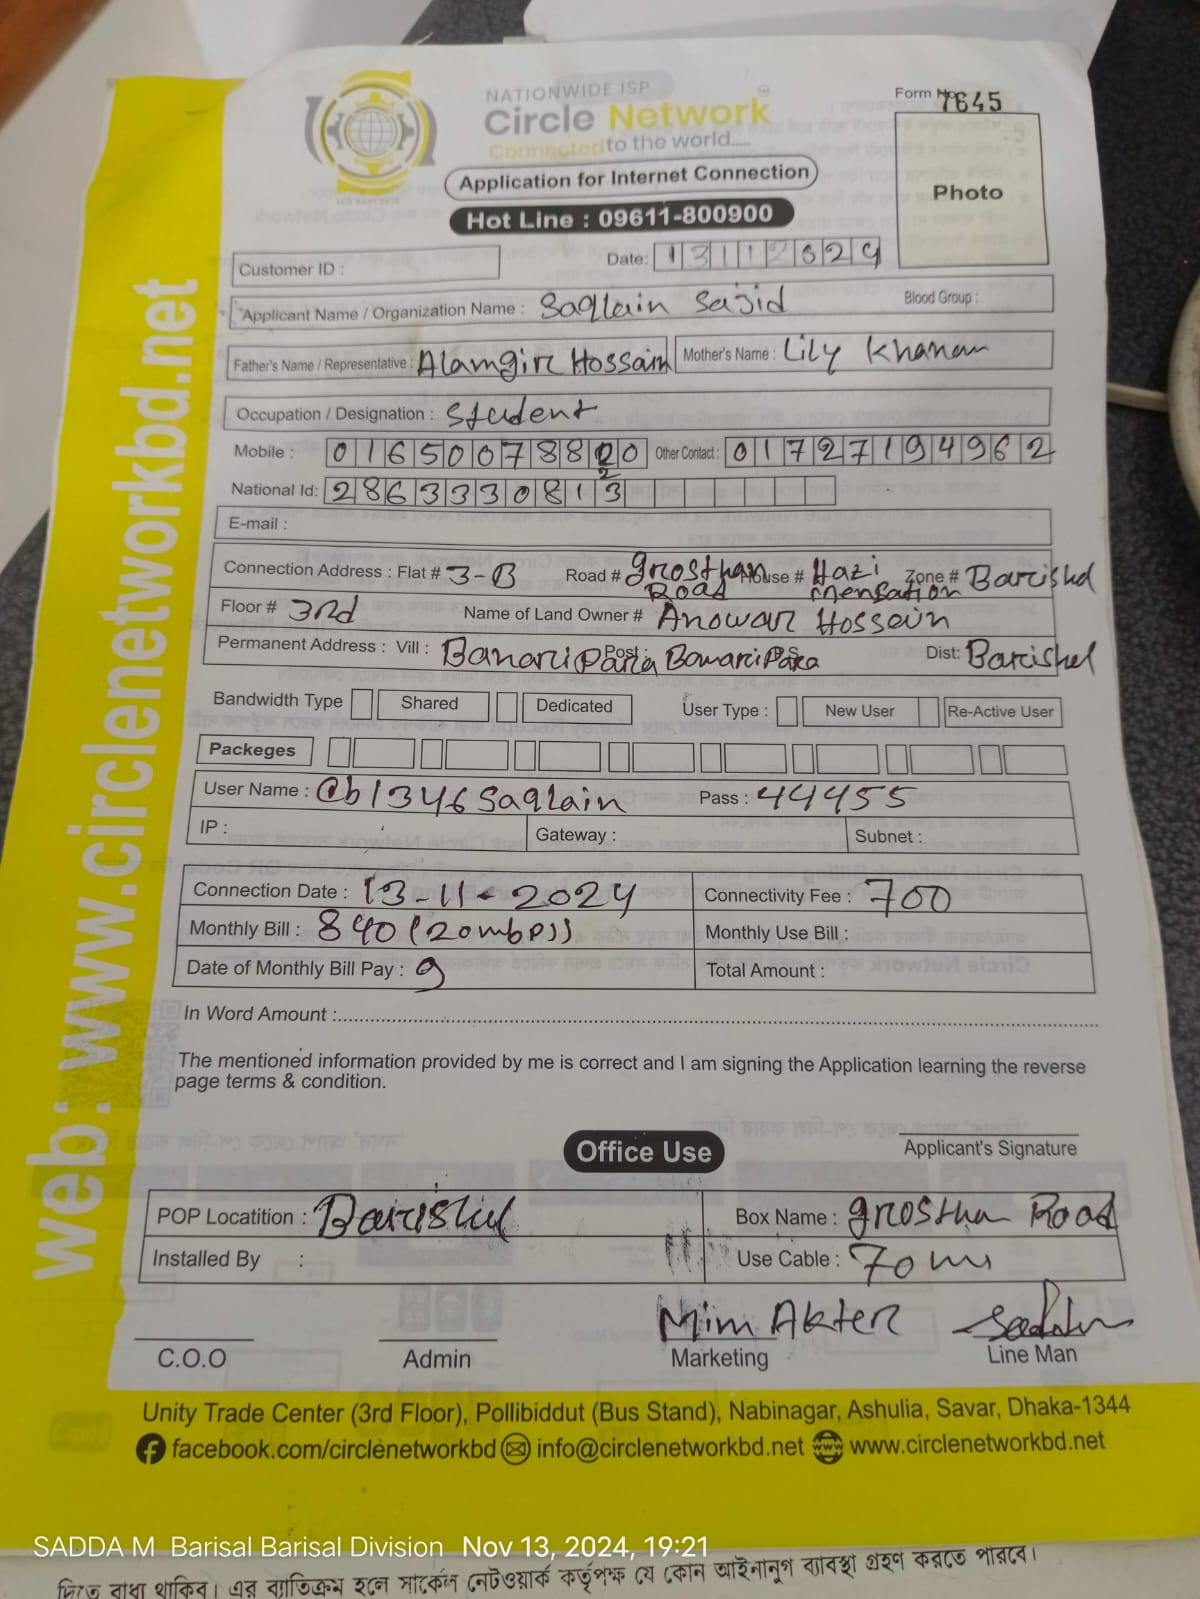 NATIONWIDE ISP
Circle Network
Connected to the world.....
Form No. 7645
Photo
Application for Internet Connection
Hot Line : 09611-800900
Customer ID :
Date: 13112024
Applicant Name / Organization Name : Saqlain Sajid Blood Group :
Father's Name / Representative : Alamgir Hossain Mother's Name : Lily Khanam
Occupation / Designation : Student
Mobile : 01650078820 Other Contact : 01727194962
2
National Id: 2863330813
E-mail :
Connection Address : Flat # 3-B Road # grosthan Road House # Hazi mensation Zone # Barishal
Floor # 3rd Name of Land Owner # Anowar Hossain
Permanent Address : Vill : Banaripara Post : Banaripara P.S Dist: Barishal
Bandwidth Type Shared Dedicated User Type : New User Re-Active User
Packeges
User Name : @b1346Saqlain Pass : 44455
IP : Gateway : Subnet :
Connection Date : 13-11-2024 Connectivity Fee : 700
Monthly Bill : 840 (20mbps) Monthly Use Bill :
Date of Monthly Bill Pay : 9 Total Amount :
In Word Amount :
The mentioned information provided by me is correct and I am signing the Application learning the reverse
page terms & condition.
Office Use
Applicant's Signature
POP Locatition : Barishal Box Name : grosthan Road
Installed By : Use Cable : 70 m
Mim Akter
C.O.O Admin Marketing Line Man
Unity Trade Center (3rd Floor), Pollibiddut (Bus Stand), Nabinagar, Ashulia, Savar, Dhaka-1344
facebook.com/circlenetworkbd info@circlenetworkbd.net www.circlenetworkbd.net
web: www.circlenetworkbd.net
SADDA M Barisal Barisal Division Nov 13, 2024, 19:21
দিতে বাধ্য থাকিব। এর ব্যতিক্রম হলে সার্কেল নেটওয়ার্ক কর্তৃপক্ষ যে কোন আইনানুগ ব্যবস্থা গ্রহণ করতে পারবে।